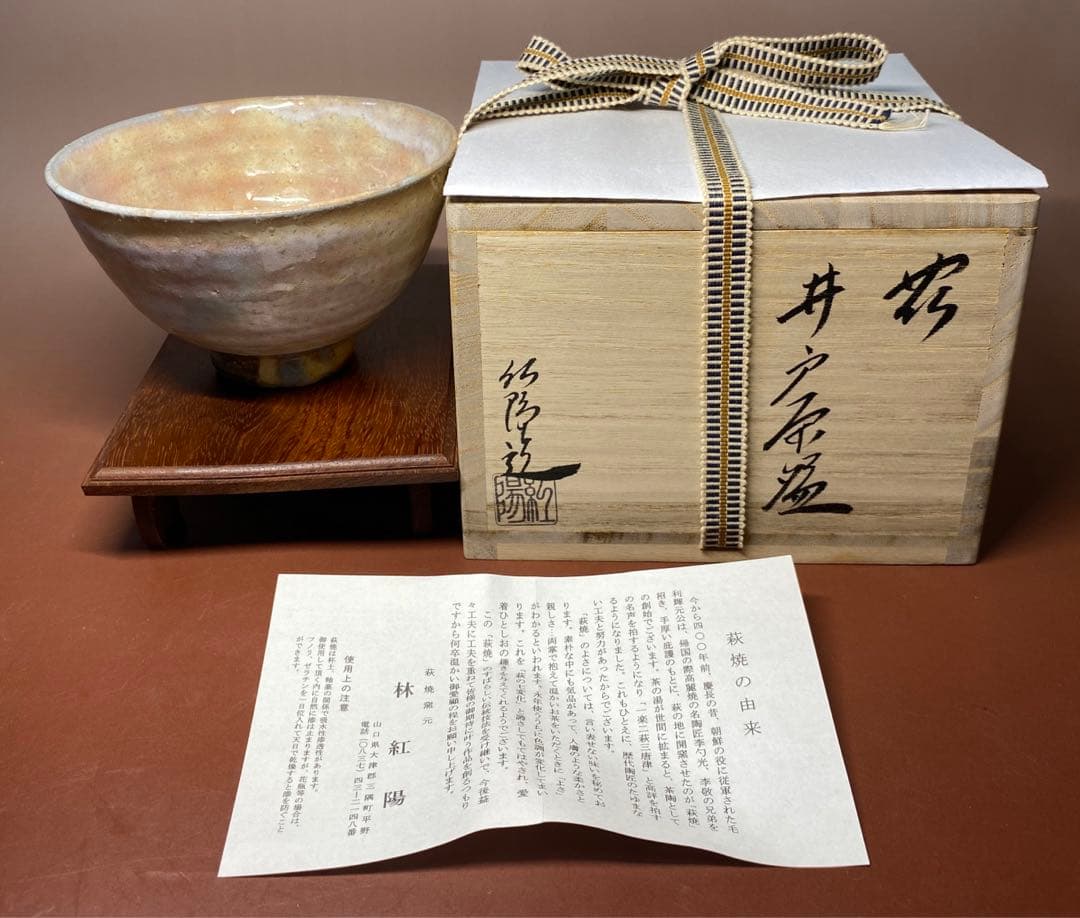 萩
井戸茶盌
紅陽
萩焼の由来
今から四〇〇年前、慶長の昔、朝鮮の役に従軍された毛
利輝元公は、帰国の際高麗焼の名陶匠李勺光、李敬の兄弟を
招き、手厚い庇護のもとに、萩の地に開窯させたのが「萩焼」
の創始でございます。茶の湯が世間に拡まると、茶陶として
の名声を拍するようになり、「一楽二萩三唐津」と高評を拍す
るようになりました。これもひとえに、歴代陶匠のたゆまな
い工夫と努力があったからでございます。
「萩焼」のよさについては、言い表せない味いを秘めてお
ります。素朴な中にも気品があって、人膚のような柔かさと
親しさ…両掌で抱えて温かいお茶をいただくときに「よさ」
がわかるといわれます。永年使ううちに色調が変化してまい
ります。これを「萩の七変化」と満さしてもてはやされ、愛
着ひとしおの趣きを与えてくれるようでございます。
この「萩焼」のすばらしい伝統技法を受け継いで、今後益
々工夫に工夫を重ねて皆様の御期待に叶う作品を創るつもり
ですから何卒温かい御愛顧の程をお願い申し上げます。
萩焼窯元
林紅陽
山口県大津郡三隅町平野
電話(〇八三七)四三-二一四八番
使用上の注意
萩焼は杯土、釉薬の関係で吸水性浸透性があります。
御使用して頂く内に自然に漆は止まりますが、花瓶等の場合は、
フノリ、ゼラチンを一日位入れて天日で乾燥すると漆を防ぐこと
ができます。